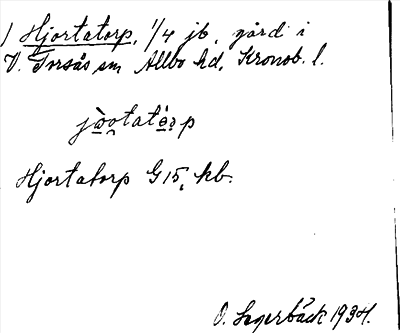 1 Hjortatorp, 1/4 jb, gård i
V. Torsås sn Allbo hd, Kronob. l.
Hjortatorp G 15, kb.
O. Segerbäck 1934.